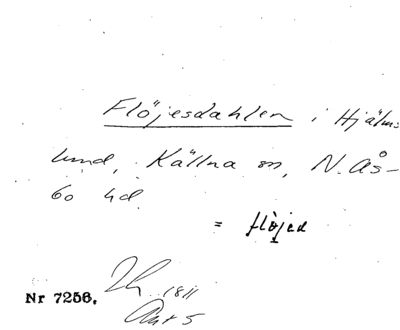 Flöjesdahlen i Hjälms
lund, Källna sn, N. Ås-
bo hd
= flöjed
Nr 7256.
1811
Akt 5